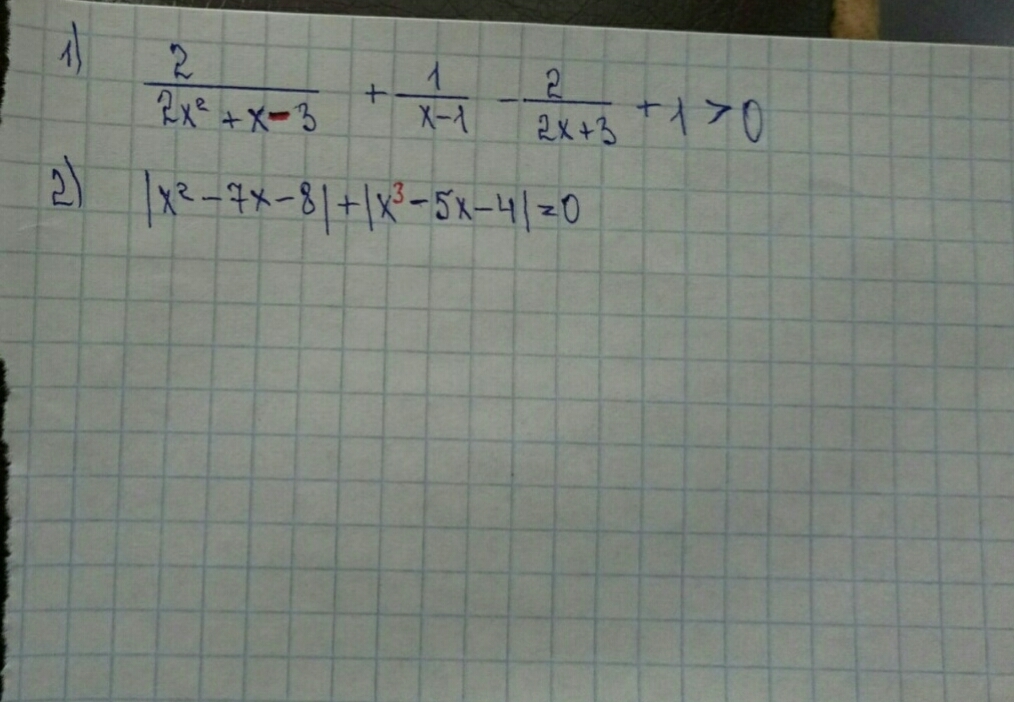 1) 2/(2x² + x - 3) + 1/(x-1) - 2/(2x+3) + 1 > 0
2) |x² - 7x - 8| + |x³ - 5x - 4| = 0